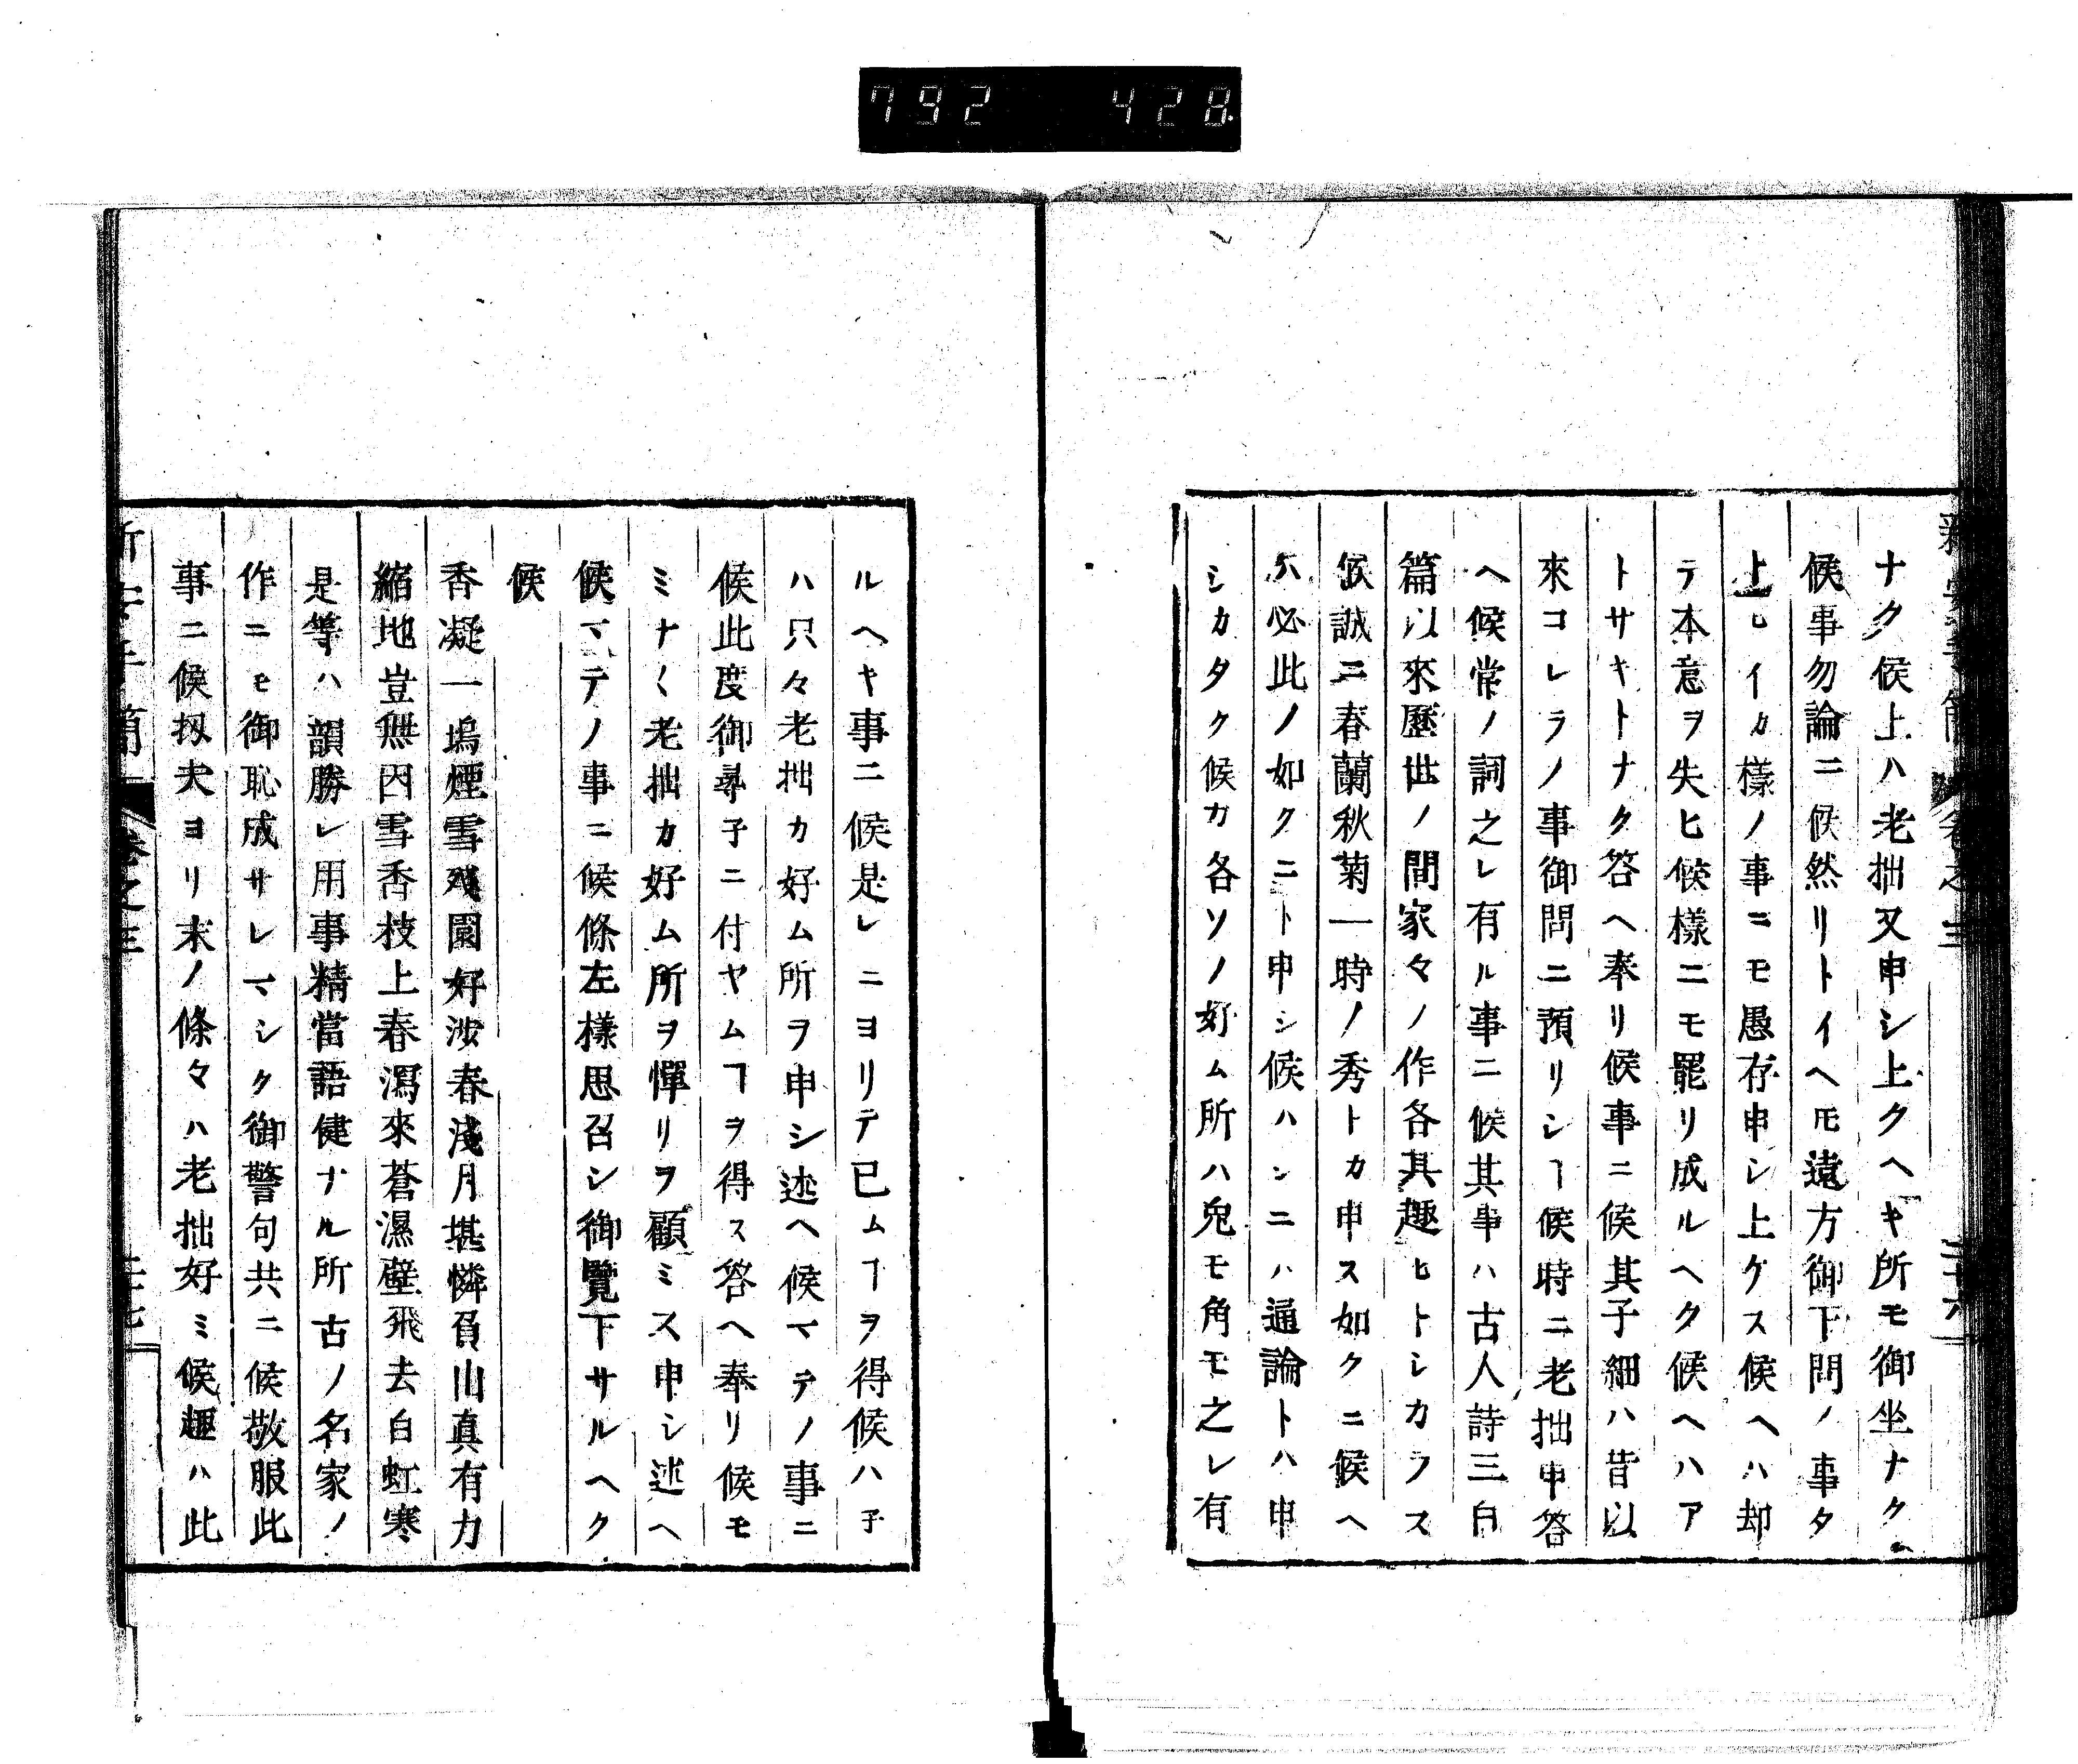 792 428
ナク候上ハ老拙又申シ上クヘキ所モ御坐ナク
候事勿論ニ候然リトイヘ𪜈遠方御下問ノ事タ
トヒイカ樣ノ事ニモ愚存申シ上ケス候ヘハ却
テ本意ヲ失ヒ候樣ニモ罷リ成ルヘク候ヘハア
トサキトナク答ヘ奉リ候事ニ候其子細ハ昔以
來コレラノ事御問ニ預リシヿ候時ニ老拙申答
ヘ候常ノ詞之レ有ル事ニ候其事ハ古人詩三百
篇以來歷世ノ間家々ノ作各其趣ヒトシカラス
候誠ニ春蘭秋菊一時ノ秀トカ申ス如クニ候ヘ
ハ必此ノ如クニト申シ候ハンニハ通論トハ申
シカタク候カ各ソノ好ム所ハ兎モ角モ之レ有
ルヘキ事ニ候是レニヨリテ已ムヿヲ得候ハ子
ハ只々老拙カ好ム所ヲ申シ述ヘ候マテノ事ニ
候此度御尋子ニ付ヤムヿヲ得ス答ヘ奉リ候モ
ミナ〱老拙カ好ム所ヲ憚リヲ顧ミス申シ述ヘ
候マテノ事ニ候條左樣思召シ御覽下サルヘク
候
香凝一塢煙雪殘園好涉春淺月堪憐負山真有力
縮地豈無因雪香枝上春瀉來蒼濕壁飛去白虹寒
是等ハ韻勝レ用事精當語健ナル所古ノ名家ノ
作ニモ御恥成サレマシク御警句共ニ候敬服此
事ニ候扨夫ヨリ末ノ條々ハ老拙好ミ候趣ハ此
卷之三